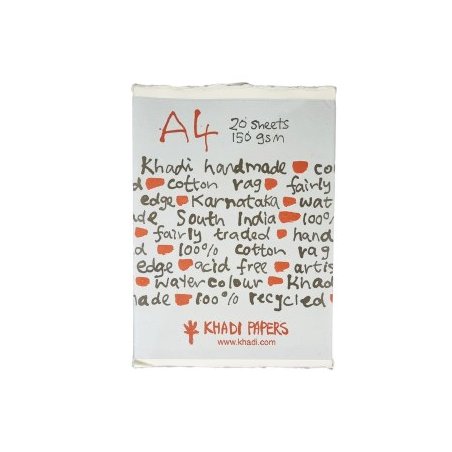 A4 20 sheets
150 gsm
Khadi handmade co
d cotton rag fairly
edge Karnataka wat
de South India 100%
fairly traded hand
d 100% cotton rag
edge acid free artis
water colour Khad
ade 100% recycled
KHADI PAPERS
www.khadi.com